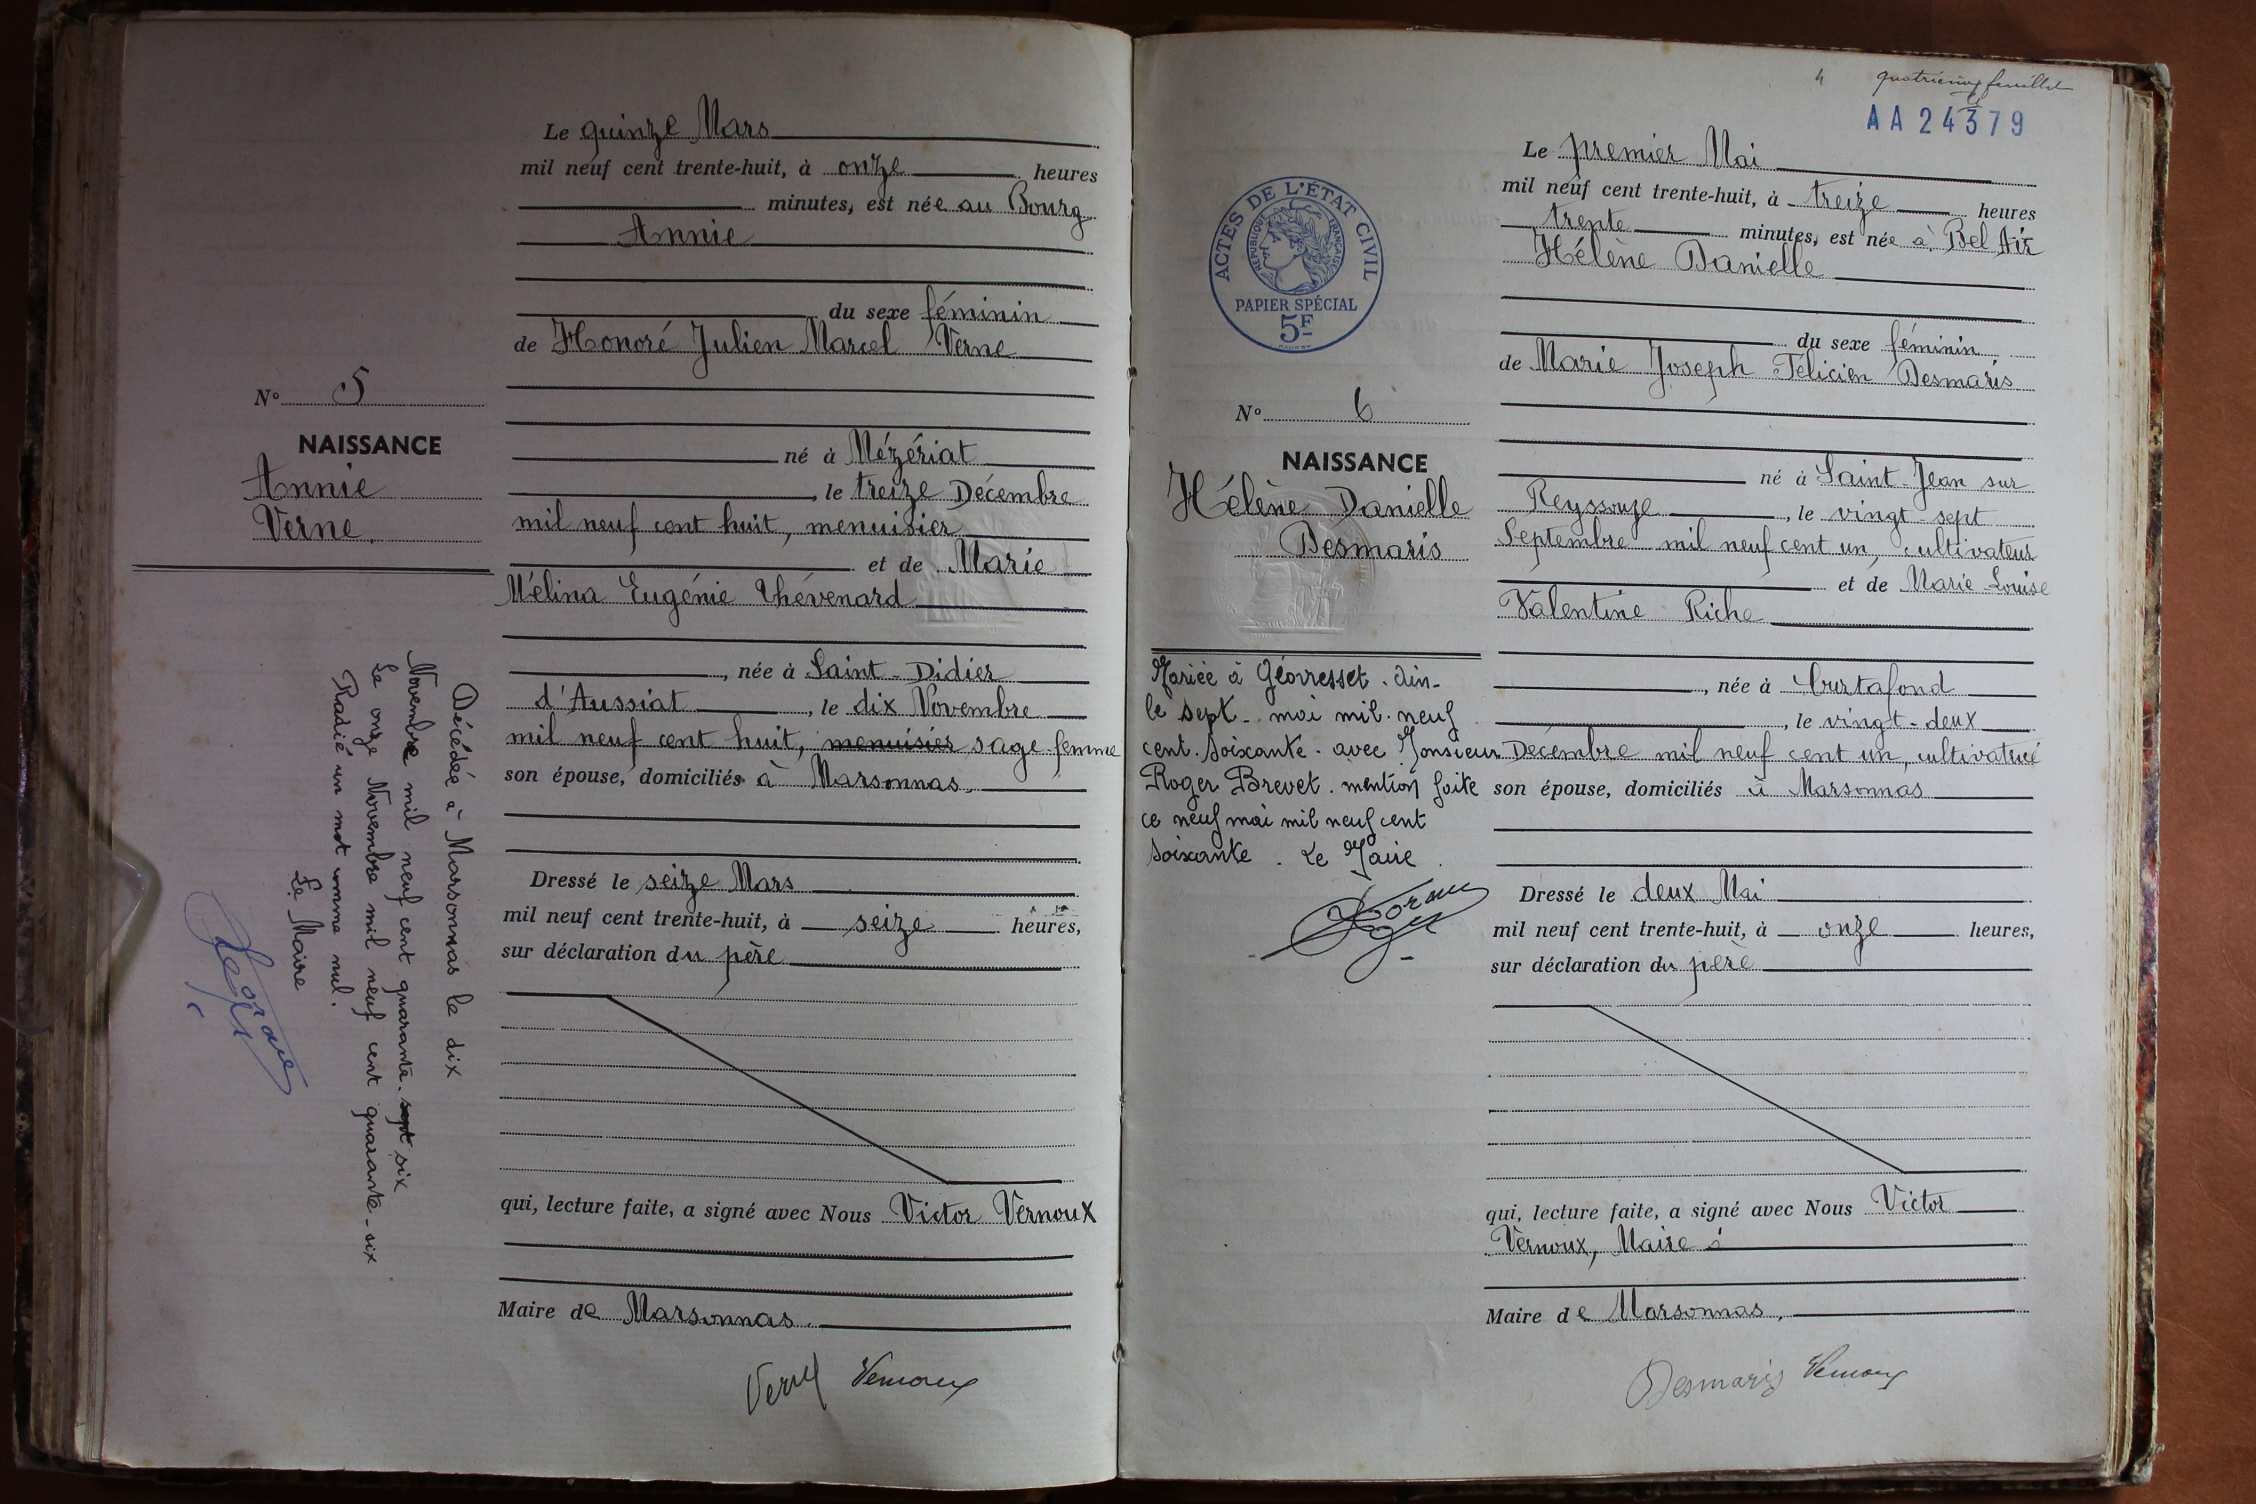 Le quinze Mars
mil neuf cent trente-huit, à onze heures
minutes, est née au Bourg
Annie
du sexe féminin
de Honoré Julien Marcel Verne
né à Mézériat
, le treize Décembre
mil neuf cent huit, menuisier
et de Marie
Mélina Eugénie Thévenard
, née à Saint-Didier
d'Aussiat, le dix Novembre
mil neuf cent huit, menuisier sage-femme
son épouse, domiciliés à Marsonnas.
Dressé le seize Mars
mil neuf cent trente-huit, à seize heures,
sur déclaration du père
qui, lecture faite, a signé avec Nous Victor Vernoux
Maire de Marsonnas.
Verne Vernoux
No 5
NAISSANCE
Annie
Verne.
Décédée à Marsonnas le dix
Novembre mil neuf cent quarante-sept six
Le onze Novembre mil neuf cent quarante-six
Radié un mot comme nul.
Le Maire
4 quatrième feuillet
AA 24379
Le premier Mai
mil neuf cent trente-huit, à treize heures
trente minutes, est née à Bel Air
Hélène Danielle
du sexe féminin
de Marie Joseph Félicien Desmaris
né à Saint-Jean sur
Reyssouze, le vingt-sept
Septembre mil neuf cent un, cultivateur
et de Marie-Louise
Valentine Riche
, née à Curtafond
, le vingt-deux
Décembre mil neuf cent un, cultivatrice
son épouse, domiciliés à Marsonnas
Dressé le deux Mai
mil neuf cent trente-huit, à onze heures,
sur déclaration du père
qui, lecture faite, a signé avec Nous Victor
Vernoux, Maire
Maire de Marsonnas.
Desmaris Vernoux
ACTES DE L'ÉTAT CIVIL
RÉPUBLIQUE FRANÇAISE
PAPIER SPÉCIAL
5F
No 6
NAISSANCE
Hélène Danielle
Desmaris
Mariée à Géovresset. Ain-
le sept- mai mil. neuf
cent. soixante. avec Monsieur
Roger Brevet. mention faite
ce neuf mai mil neuf cent
soixante. Le Maire.